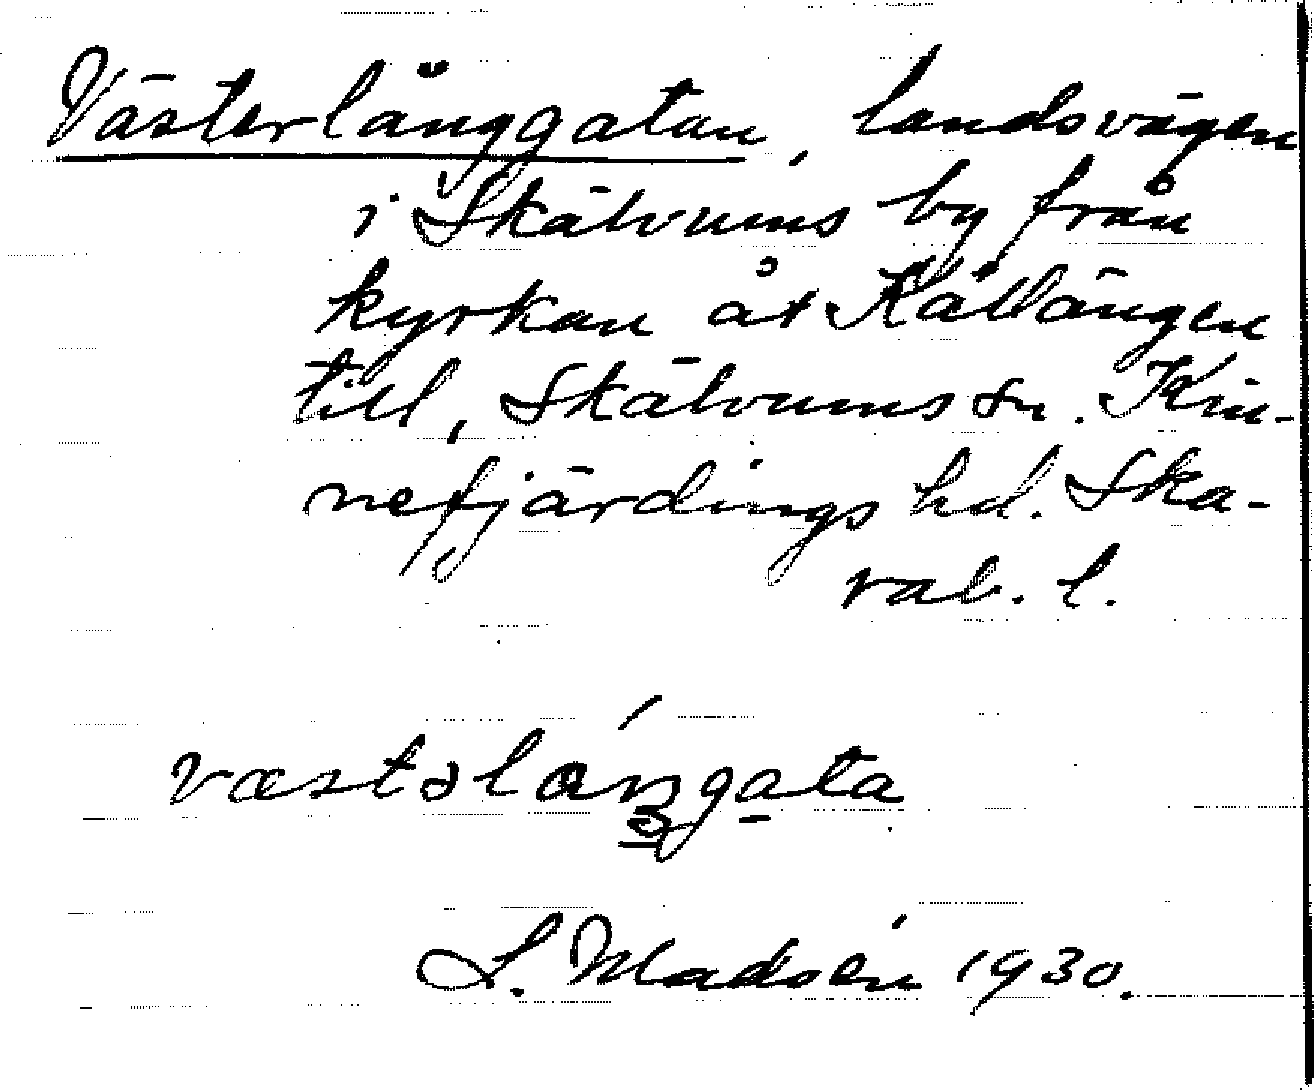 Västerlånggatan, landsvägen
i Skälvums by från
kyrkan åt Källängen
till, Skälvums sn. Kin-
nefjärdings hd. Ska-
rab. l.
L. Madsén 1930.